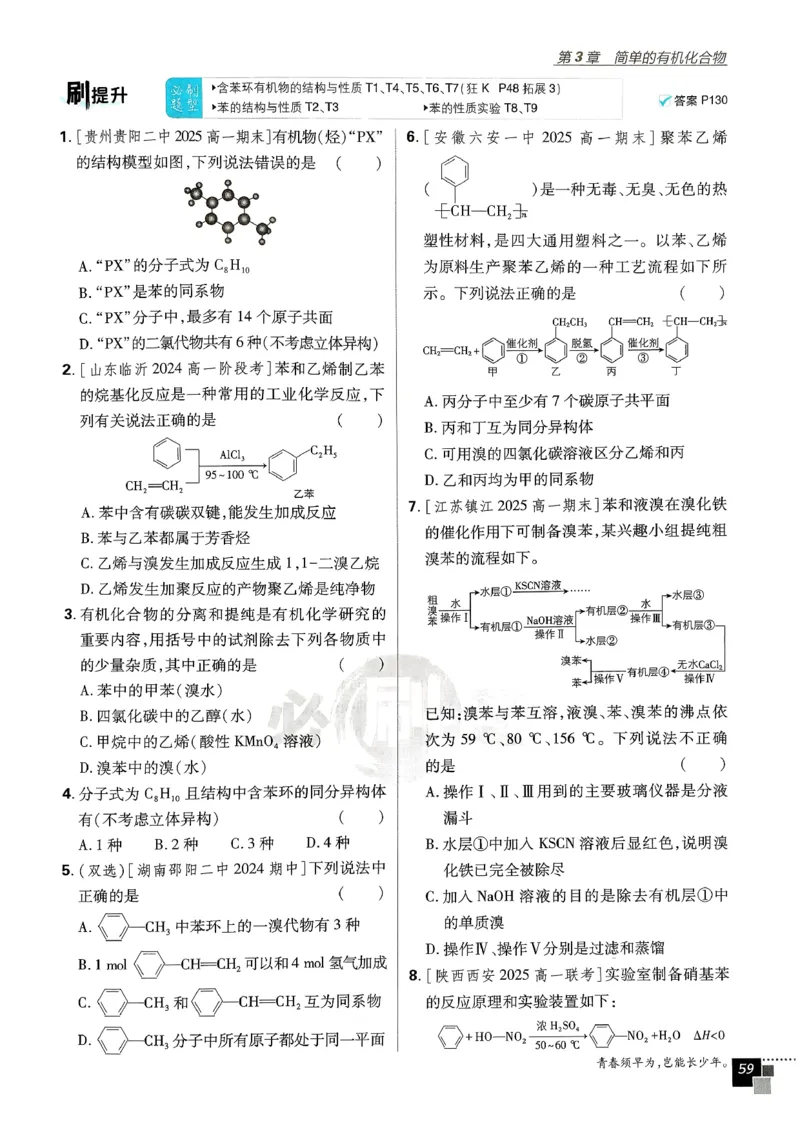 第3章 简单的有机化合物
刷提升
必刷题型
▶含苯环有机物的结构与性质 T1、T4、T5、T6、T7(狂K P48拓展3)
▶苯的结构与性质 T2、T3 ▶苯的性质实验 T8、T9
答案 P130
1. [贵州贵阳二中2025高一期末]有机物(烃)“PX”
的结构模型如图,下列说法错误的是 ( )
A. “PX”的分子式为 C₈H₁₀
B. “PX”是苯的同系物
C. “PX”分子中,最多有 14 个原子共面
D. “PX”的二氯代物共有 6 种(不考虑立体异构)
2. [山东临沂2024高一阶段考]苯和乙烯制乙苯
的烷基化反应是一种常用的工业化学反应,下
列有关说法正确的是 ( )
C₂H₅
AlCl₃
95~100 ℃
CH₂=CH₂
乙苯
A. 苯中含有碳碳双键,能发生加成反应
B. 苯与乙苯都属于芳香烃
C. 乙烯与溴发生加成反应生成 1,1-二溴乙烷
D. 乙烯发生加聚反应的产物聚乙烯是纯净物
3. 有机化合物的分离和提纯是有机化学研究的
重要内容,用括号中的试剂除去下列各物质中
的少量杂质,其中正确的是 ( )
A. 苯中的甲苯(溴水)
B. 四氯化碳中的乙醇(水)
C. 甲烷中的乙烯(酸性 KMnO₄ 溶液)
D. 溴苯中的溴(水)
4. 分子式为 C₈H₁₀ 且结构中含苯环的同分异构体
有(不考虑立体异构) ( )
A. 1 种 B. 2 种 C. 3 种 D. 4 种
5. (双选)[湖南邵阳二中2024期中]下列说法中
正确的是 ( )
A. —CH₃ 中苯环上的一溴代物有 3 种
B. 1 mol —CH=CH₂ 可以和 4 mol 氢气加成
C. —CH₃ 和 —CH=CH₂ 互为同系物
D. —CH₃ 分子中所有原子都处于同一平面
6. [安徽六安一中 2025 高一期末]聚苯乙烯
( )是一种无毒、无臭、无色的热
⁅CH—CH₂⁆ₙ
塑性材料,是四大通用塑料之一。以苯、乙烯
为原料生产聚苯乙烯的一种工艺流程如下所
示。下列说法正确的是 ( )
CH₂CH₃ CH=CH₂ ⁅CH—CH₂⁆ₙ
CH₂=CH₂+ 催化剂 ① 脱氢 ② 催化剂 ③
甲 乙 丙 丁
A. 丙分子中至少有 7 个碳原子共平面
B. 丙和丁互为同分异构体
C. 可用溴的四氯化碳溶液区分乙烯和丙
D. 乙和丙均为甲的同系物
7. [江苏镇江2025高一期末]苯和液溴在溴化铁
的催化作用下可制备溴苯,某兴趣小组提纯粗
溴苯的流程如下。
粗溴苯 水 操作Ⅰ 水层① KSCN溶液 ……
有机层① NaOH溶液 操作Ⅱ 有机层② 水 操作Ⅲ 水层③
水层② 有机层③
溴苯 苯 操作Ⅴ 有机层④ 无水CaCl₂ 操作Ⅳ
已知:溴苯与苯互溶,液溴、苯、溴苯的沸点依
次为 59 ℃、80 ℃、156 ℃。下列说法不正确
的是 ( )
A. 操作Ⅰ、Ⅱ、Ⅲ用到的主要玻璃仪器是分液
漏斗
B. 水层①中加入 KSCN 溶液后显红色,说明溴
化铁已完全被除尽
C. 加入 NaOH 溶液的目的是除去有机层①中
的单质溴
D. 操作Ⅳ、操作Ⅴ分别是过滤和蒸馏
8. [陕西西安2025高一联考]实验室制备硝基苯
的反应原理和实验装置如下:
+HO—NO₂ 浓 H₂SO₄ 50~60 ℃ —NO₂+H₂O ΔH<0
青春须早为,岂能长少年。
59
必刷